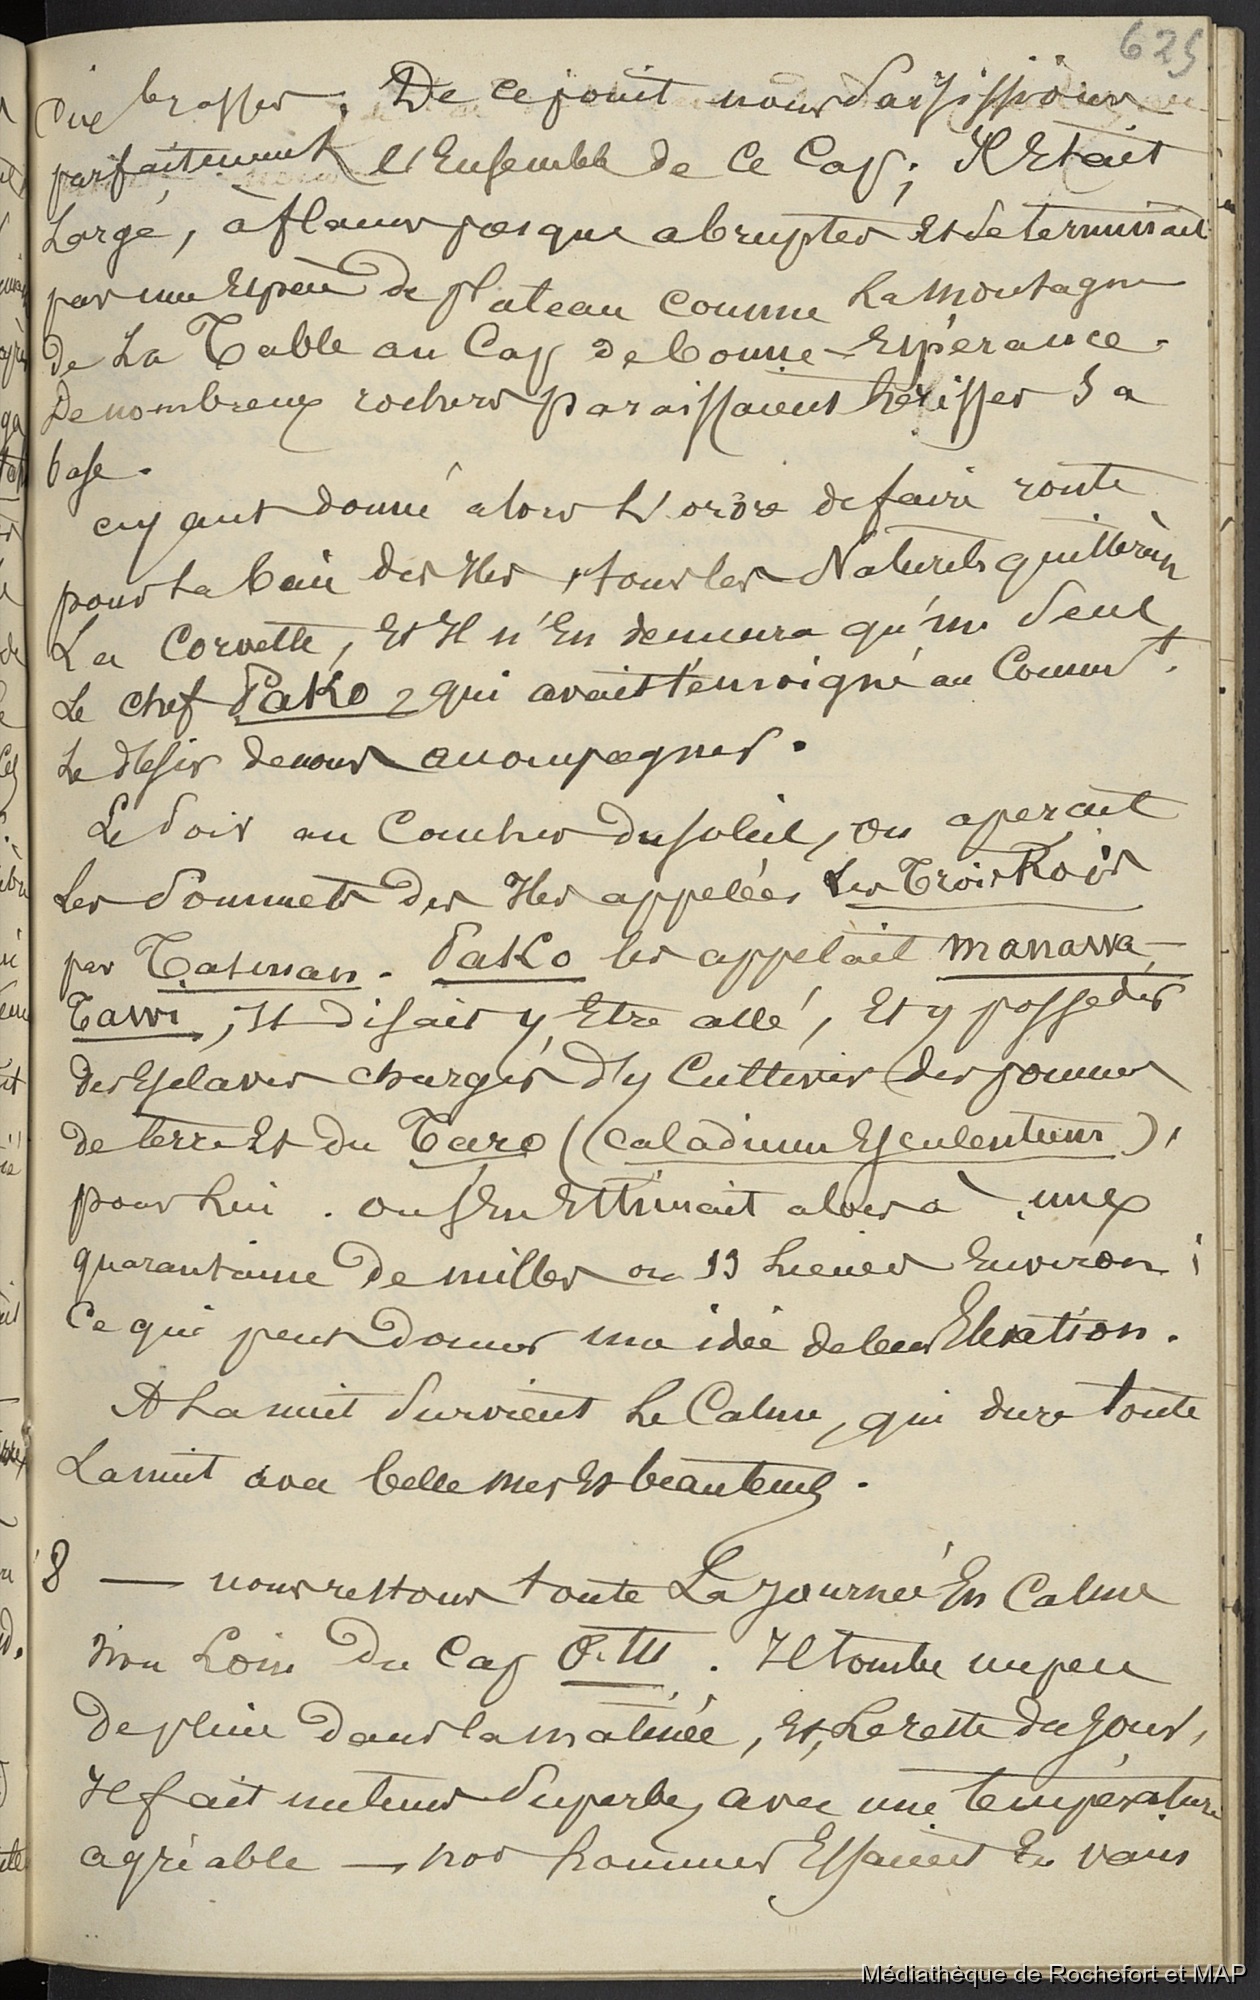 625
brasses. De ce point nous saisissions
parfaitement l'Ensemble de ce Cap; Il Etait
Large, à flancs presque abruptes et se terminait
par une Espèce de plateau comme La montagne
de La Table au Cap de bonne-Espérance.
De nombreux rochers paraissaient hérisser sa
base.
ayant donné alors L'ordre de faire route
pour La baie des Iles, tous les Naturels quittèrent
La Corvette, Et Il n'En demeura qu'un seul
Le chef SaKo, qui avait témoigné au Commdt.
Le désir de nous accompagner.
Le soir au Coucher du soleil, on aperçait
Les sommets des Iles appelées Les Trois Rois
par Tasman. SaKo les appelait manawa-
Tawi, Il disait y Etre allé, Et y posseder
des Esclaves chargés d'y Cultiver des pommes
de terre Et du Taro (Caladium Esculentum),
pour Lui. on s'En Estimait alors à une
quarantaine de milles ou 13 Lieues Environ;
Ce qui peut Donner une idée de leur Elévation.
A La nuit survient Le Calme, qui dure toute
La nuit avec belle mer Et beau temps.
8 — nous restons toute La journée En Calme
non Loin du Cap Otto. Il tombe un peu
de pluie dans la matinée, Et, Le reste du jour,
Il fait un temps superbe, avec une température
agréable — nos hommes Essaient En vain
Médiathèque de Rochefort et MAP